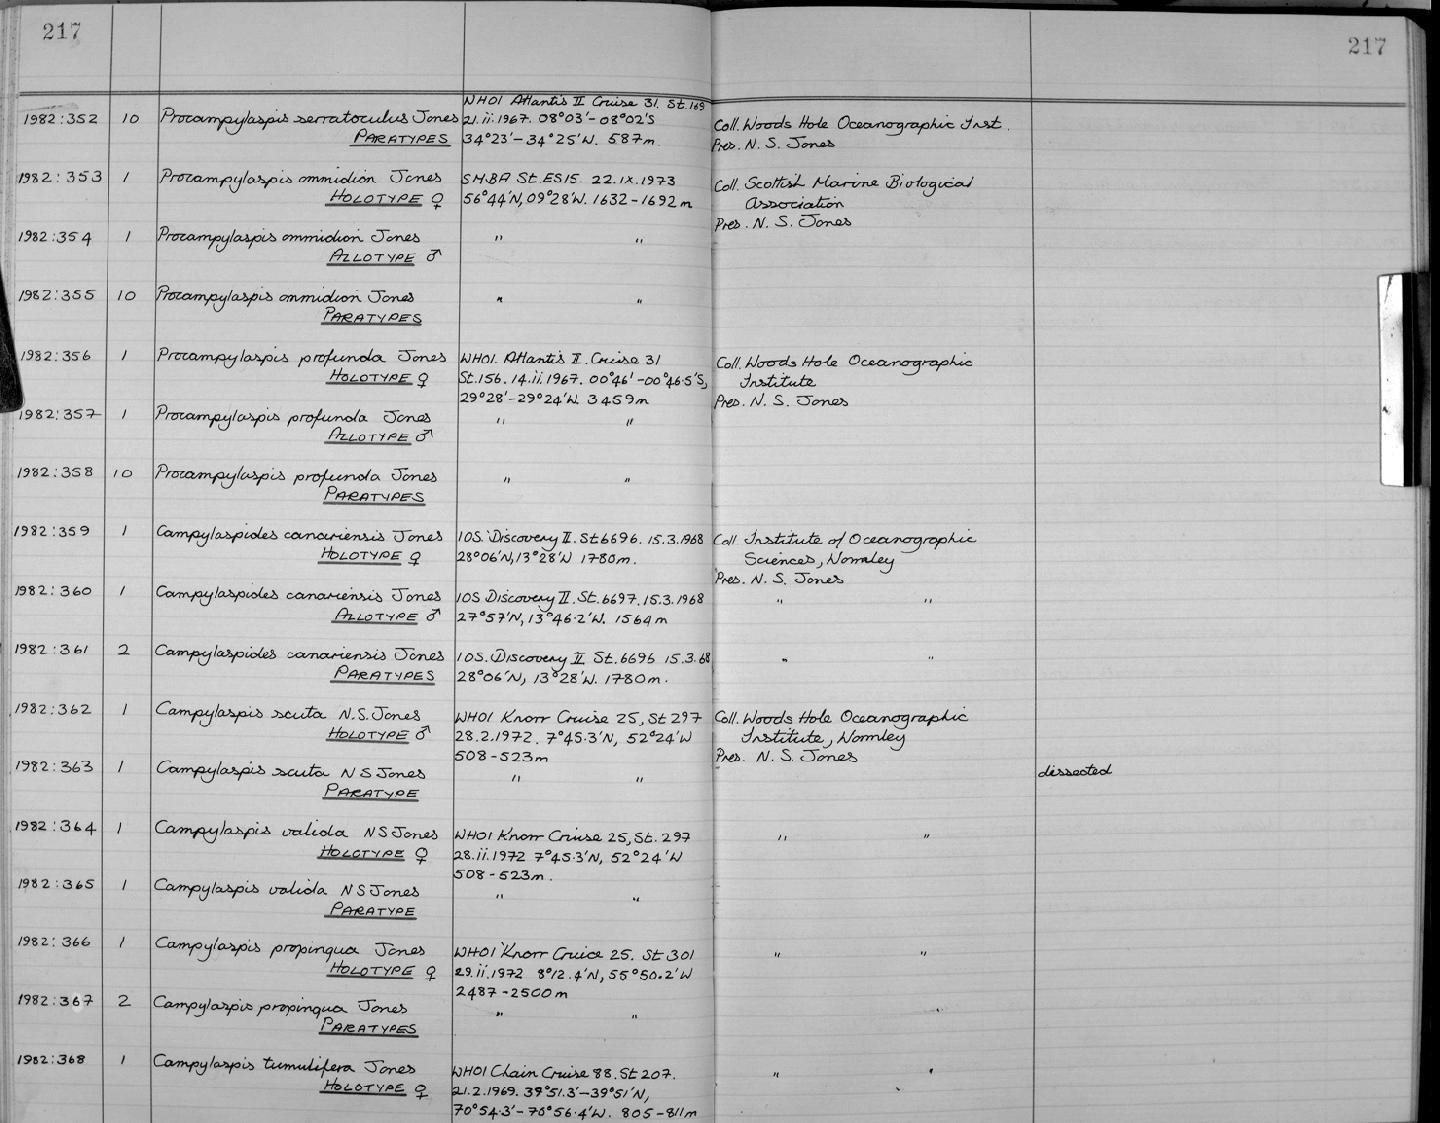 217
217
1982:352 10 Procampylaspis serratoculus Jones WHOI Atlantis II Cruise 31. St.169
PARATYPES 21.ii.1967. 08°03'-08°02'S
34°23'-34°25'W. 587m.
Coll. Woods Hole Oceanographic Inst.
Pres. N. S. Jones
1982:353 1 Procampylaspis ommidion Jones SMBA St. ES15 22.ix.1973
HOLOTYPE ♀ 56°44'N, 09°28'W. 1632-1692m
Coll. Scottish Marine Biological
Association
Pres. N. S. Jones
1982:354 1 Procampylaspis ommidion Jones " "
ALLOTYPE ♂
1982:355 10 Procampylaspis ommidion Jones " "
PARATYPES
1982:356 1 Procampylaspis profunda Jones WHOI. Atlantis II. Cruise 31
HOLOTYPE ♀ St.156. 14.ii.1967. 00°46'-00°46.5'S,
29°28'-29°24'W. 3459m
Coll. Woods Hole Oceanographic
Institute
Pres. N. S. Jones
1982:357 1 Procampylaspis profunda Jones " "
ALLOTYPE ♂
1982:358 10 Procampylaspis profunda Jones " "
PARATYPES
1982:359 1 Campylaspides canariensis Jones IOS. Discovery II. St6696. 15.3.1968
HOLOTYPE ♀ 28°06'N, 13°28'W 1780m.
Coll. Institute of Oceanographic
Sciences, Wormley
Pres. N. S. Jones
1982:360 1 Campylaspides canariensis Jones IOS Discovery II. St.6697. 15.3.1968 " "
ALLOTYPE ♂ 27°57'N, 13°46.2'W. 1564m
1982:361 2 Campylaspides canariensis Jones IOS. Discovery II St.6696 15.3.68 " "
PARATYPES 28°06'N, 13°28'W. 1780m.
1982:362 1 Campylaspis scuta N.S. Jones WHOI Knorr Cruise 25, St 297
HOLOTYPE ♂ 28.2.1972. 7°45.3'N, 52°24'W
508-523m
Coll. Woods Hole Oceanographic
Institute, Wormley
Pres. N. S. Jones
1982:363 1 Campylaspis scuta NS Jones " " dissected
PARATYPE
1982:364 1 Campylaspis valida NS Jones WHOI Knorr Cruise 25, St. 297 " "
HOLOTYPE ♀ 28.ii.1972 7°45.3'N, 52°24'W
508-523m.
1982:365 1 Campylaspis valida NS Jones " "
PARATYPE
1982:366 1 Campylaspis propinqua Jones WHOI Knorr Cruice 25. St 301 " "
HOLOTYPE ♀ 29.ii.1972 8°12.4'N, 55°50.2'W
2487-2500m
1982:367 2 Campylaspis propinqua Jones " " "
PARATYPES
1982:368 1 Campylaspis tumulifera Jones WHOI Chain Cruise 88. St 207. " "
HOLOTYPE ♀ 21.2.1969. 39°51.3'-39°51'N,
70°54.3'-70°56.4'W. 805-811m